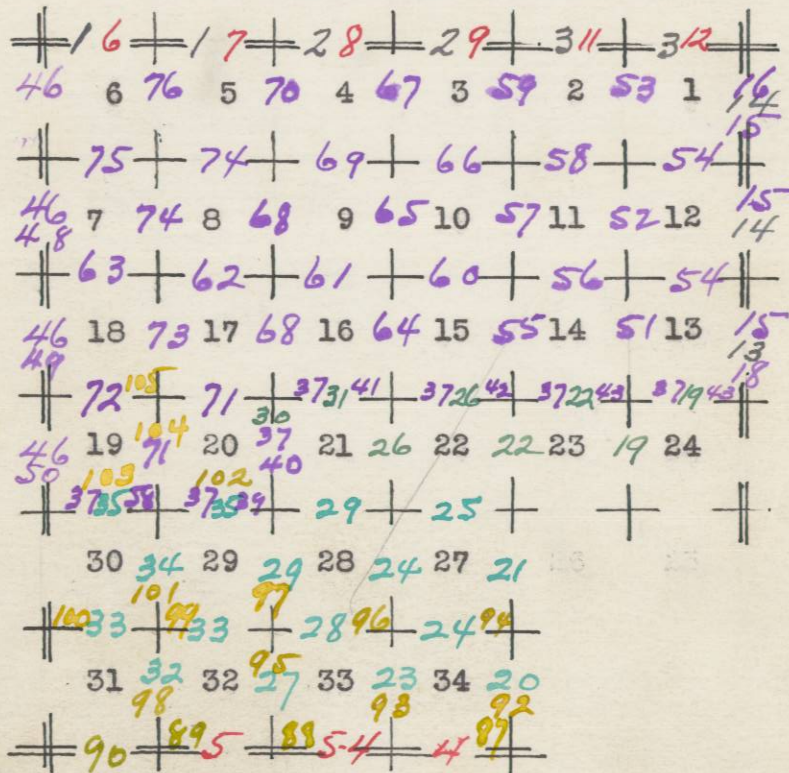 1 6 1 7 2 8 2 9 3 11 3 12
46 6 76 5 70 4 67 3 59 2 53 1 16
14
15
75 74 69 66 58 54
46 7 74 8 68 9 65 10 57 11 52 12 15
48 14
63 62 61 60 56 54
46 18 73 17 68 16 64 15 55 14 51 13 15
49 13
18
72 105 71 37 31 41 37 26 42 37 22 43 37 19 43
30
104
46 19 71 20 37 21 26 22 22 23 19 24
50 40
103 102
37 35 38 37 35 39 29 25
30 34 29 29 28 24 27 21
101 97
100 33 99 33 28 96 24 94
95
31 32 32 27 33 23 34 20
98 93 92
90 89 5 88 5-4 4 87